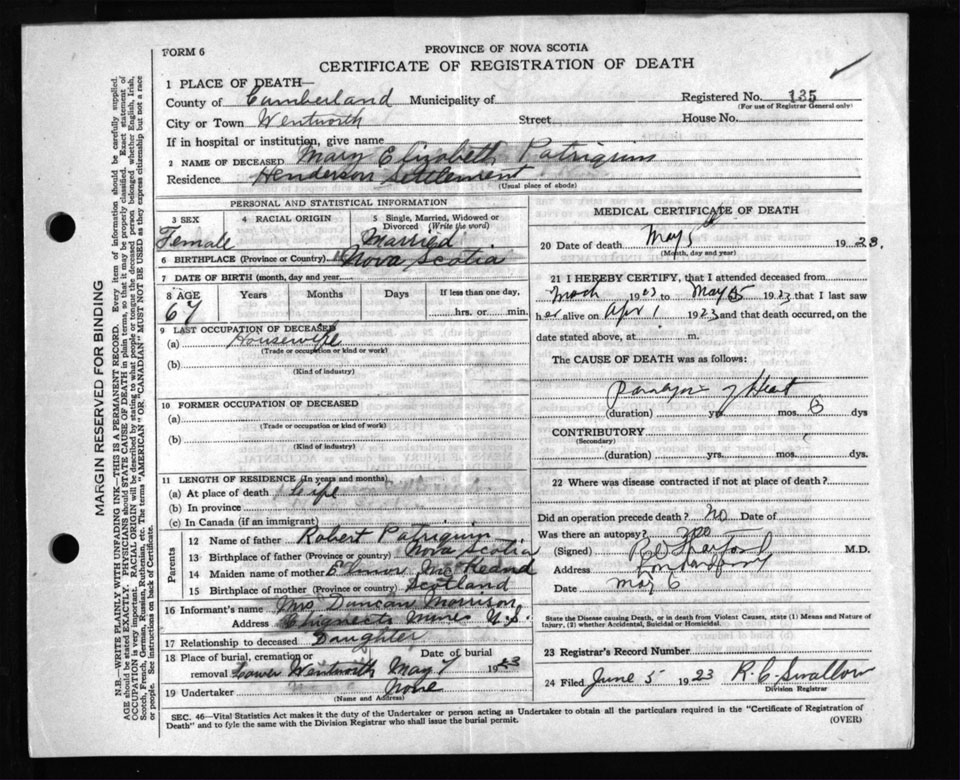 FORM 6
PROVINCE OF NOVA SCOTIA
CERTIFICATE OF REGISTRATION OF DEATH
1 PLACE OF DEATH—
County of Cumberland Municipality of
Registered No. 135
(For use of Registrar General only)
City or Town Wentworth Street House No.
If in hospital or institution, give name
2 NAME OF DECEASED Mary Elizabeth Patriquin
Residence Henderson Settlement
(Usual place of abode)
PERSONAL AND STATISTICAL INFORMATION
3 SEX 4 RACIAL ORIGIN 5 Single, Married, Widowed or
Divorced (Write the word)
Female Married
6 BIRTHPLACE (Province or Country) Nova Scotia
7 DATE OF BIRTH (month, day and year)
8 AGE Years Months Days If less than one day,
67 hrs. or min.
9 LAST OCCUPATION OF DECEASED
(a) Housewife
(Trade or occupation or kind or work)
(b)
(Kind of industry)
10 FORMER OCCUPATION OF DECEASED
(a)
(Trade or occupation or kind of work)
(b)
(Kind of industry)
11 LENGTH OF RESIDENCE (In years and months)
(a) At place of death Life
(b) In province
(c) In Canada (if an immigrant)
Parents
12 Name of father Robert Patriquin
13 Birthplace of father (Province or country) Nova Scotia
14 Maiden name of mother
15 Birthplace of mother (Province or country) Scotland
16 Informant's name Mrs Duncan Morrison
Address Chignecto Mines N.S.
17 Relationship to deceased Daughter
18 Place of burial, cremation or Date of burial
removal Lower Wentworth May 7 1923
19 Undertaker None
(Name and Address)
MEDICAL CERTIFICATE OF DEATH
20 Date of death May 5th 1923.
(Month, day and year)
21 I HEREBY CERTIFY, that I attended deceased from
1923 to May 5 1923 that I last saw
her alive on Apr 1 1923 and that death occurred, on the
date stated above, at m.
The CAUSE OF DEATH was as follows:
Paralysis of Heart
(duration) yrs. mos. 6 dys
CONTRIBUTORY
(Secondary)
(duration) yrs. mos. dys.
22 Where was disease contracted if not at place of death?
Did an operation precede death? no Date of
Was there an autopsy? no
(Signed) M.D.
Address
Date May 6
State the Disease causing Death, or in death from Violent Causes, state (1) Means and Nature of
Injury, (2) whether Accidental, Suicidal or Homicidal.
23 Registrar's Record Number
24 Filed June 5 1923 R.C. Swallow
Division Registrar
SEC. 46—Vital Statistics Act makes it the duty of the Undertaker or person acting as Undertaker to obtain all the particulars required in the "Certificate of Registration of
Death" and to fyle the same with the Division Registrar who shall issue the burial permit.
(OVER)
MARGIN RESERVED FOR BINDING
N.B.—WRITE PLAINLY WITH UNFADING INK—THIS IS A PERMANENT RECORD. Every item of information should be carefully supplied.
AGE should be stated EXACTLY. PHYSICIANS should STATE CAUSE OF DEATH in plain terms, so that it may be properly classified. Exact statement of
OCCUPATION is very important. RACIAL ORIGIN will be described by stating to what people or tongue the deceased person belonged whether English, Irish,
Scotch, French, German, Russian, Ruthenian, etc. The terms "AMERICAN" OR "CANADIAN" MUST NOT BE USED as they express citizenship but not a race
or people. See instructions on back of Certificate.